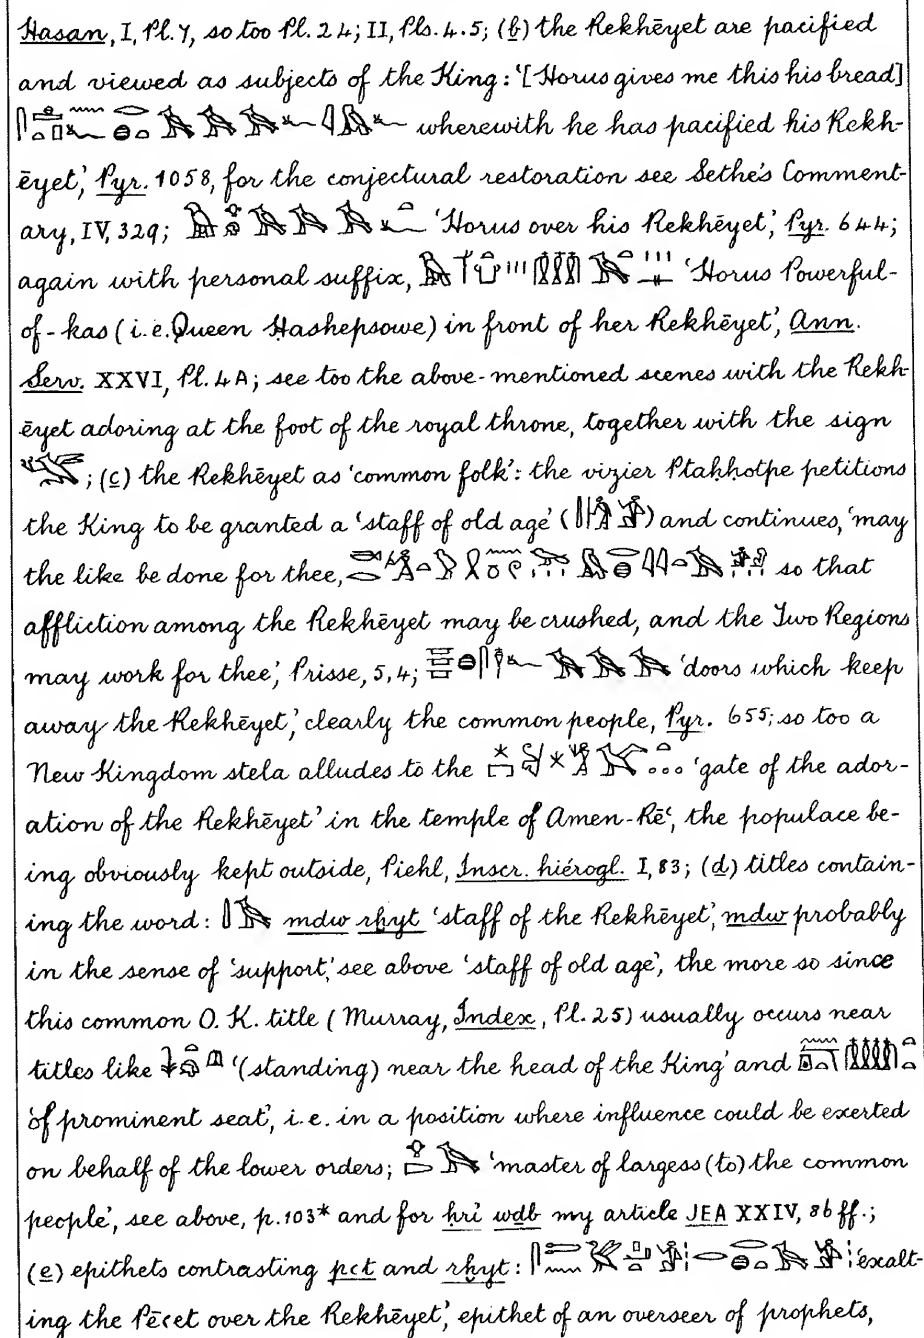 Hasan, I, Pl. 7, so too Pl. 24; II, Pls. 4.5; (b) the Rekhēyet are pacified
and viewed as subjects of the King: '[Horus gives me this his bread]
wherewith he has pacified his Rekh-
ēyet', Pyr. 1058, for the conjectural restoration see Sethe's Comment-
ary, IV, 329; 'Horus over his Rekhēyet', Pyr. 644;
again with personal suffix, 'Horus Powerful-
of-kas (i.e. Queen Ḥashepsowe) in front of her Rekhēyet', Ann.
Serv. XXVI, Pl. 4A; see too the above-mentioned scenes with the Rekh-
ēyet adoring at the foot of the royal throne, together with the sign
; (c) the Rekhēyet as 'common folk': the vizier Ptaḥḥotpe petitions
the King to be granted a 'staff of old age' ( ) and continues, 'may
the like be done for thee, so that
affliction among the Rekhēyet may be crushed, and the Two Regions
may work for thee', Prisse, 5,4; 'doors which keep
away the Rekhēyet', clearly the common people, Pyr. 655; so too a
New Kingdom stela alludes to the 'gate of the ador-
ation of the Rekhēyet' in the temple of Amen-Rēʿ, the populace be-
ing obviously kept outside, Piehl, Inscr. hiérogl. I, 83; (d) titles contain-
ing the word: mdw rḫyt 'staff of the Rekhēyet', mdw probably
in the sense of 'support,' see above 'staff of old age', the more so since
this common O. K. title (Murray, Index, Pl. 25) usually occurs near
titles like '(standing) near the head of the King' and
'of prominent seat', i.e. in a position where influence could be exerted
on behalf of the lower orders; 'master of largess (to) the common
people', see above, p. 103* and for ḥri wdb my article JEA XXIV, 86 ff.;
(e) epithets contrasting pꜥt and rḫyt: 'exalt-
ing the Pēꜥet over the Rekhēyet', epithet of an overseer of prophets,